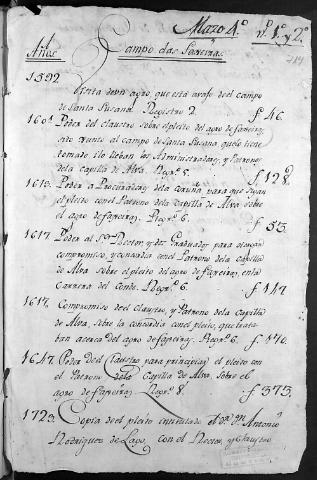 Mazo 4º nº 1º y 2º
Años Campo das Fareiras
1592
Venta de un agro, que está avajo del campo
de Santa Susana. Registro 2. fº 46
1601 Poder del claustro sobre el pleito del agro de fareiras
sito junto al campo de Santa Susana, que lo tiene
tomado i lo lleban los Administradores, y Patronos
de la capilla de Alva. Regrº 5. fº 128
1613. Poder a Procuradores de la coruña, para que sigan
el pleito con el Patrono de la capilla de Alva sobre
el agro de fareiras. Regrº 6. fº 53
1617 Poder al Sr Rector, y dos Graduados para
compromiso, y concordia con el Patrono dela capilla
de Alva sobre el pleito del agro de fareiras, en la
Carrera del Conde. Regrº 6. fº 147
1617. Compromiso de el claustro, y Patrono dela capilla
de Alva, sobre la concordia en el pleito, que trata
ban acerca del agro de fareiras. Regrº 6. fº 170
1647. Poder del Claustro para principiar el pleito con
el Patrono dela Capilla de Alva. sobre el
agro de fareiras. Regrº 8. fº 375
1723. Copia de el pleito intitulado de Dn Antonio
Rodriguez de Lago, con el Rector, y Claustro